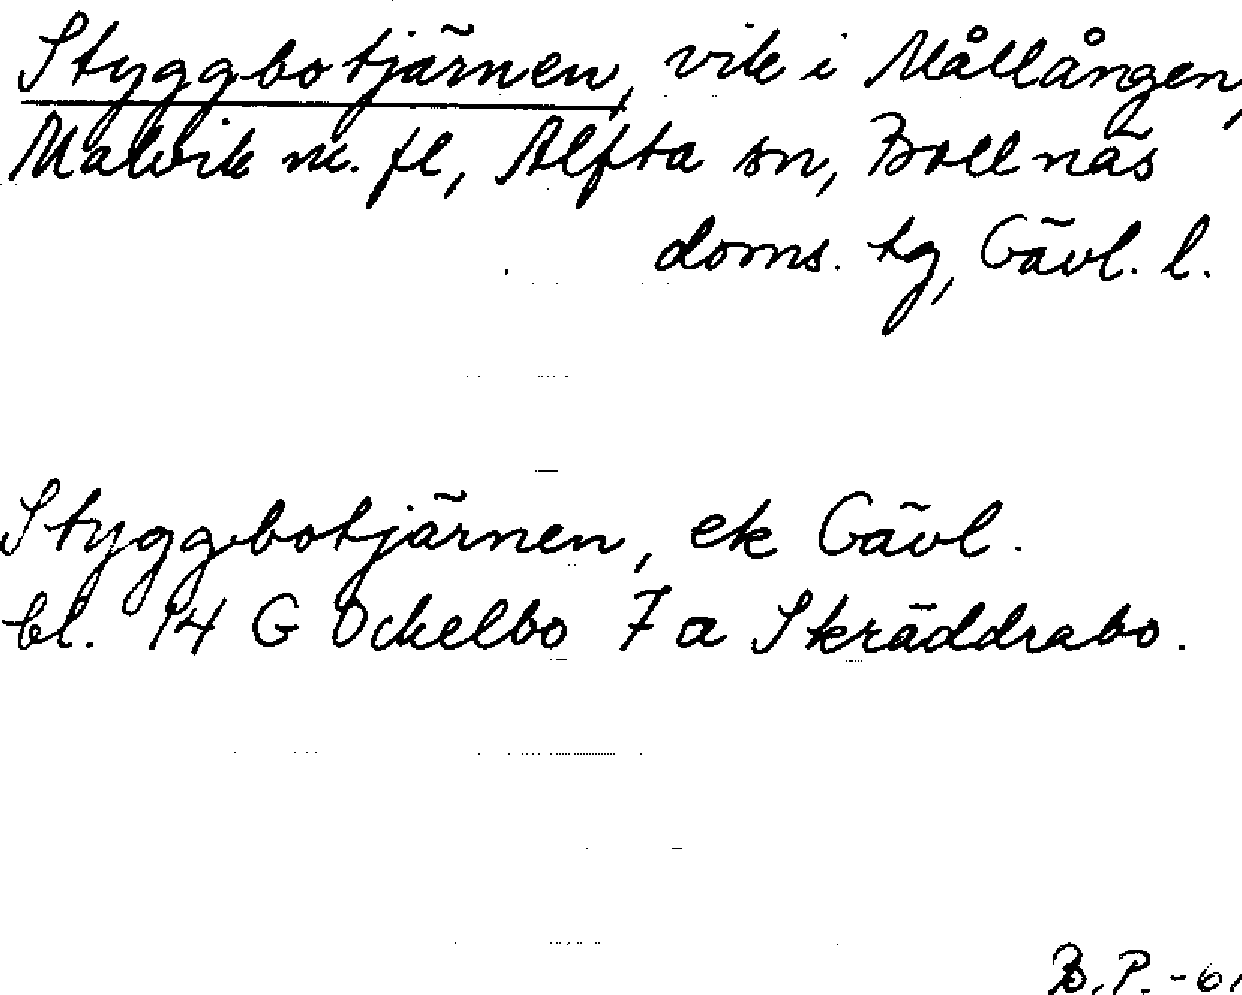 Styggbotjärnen, vik i Mållången,
Malvik m. fl, Alfta sn, Bollnäs
doms. tg, Gävl. l.
Styggbotjärnen, ek Gävl.
bl. 14 G Ockelbo 7 a Skräddrabo.
B.P. -61